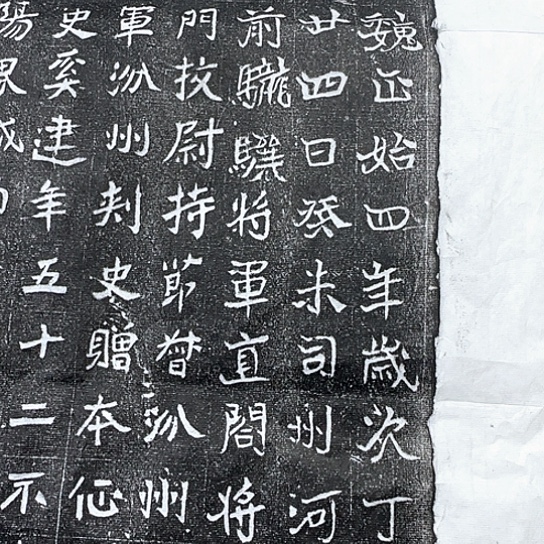 魏正始四年歲次丁
廿四日癸未司州河
前䮾驤將軍直閤將
門挍尉持節督汾州
軍汾州刾史贈本征
史奚建年五十二不